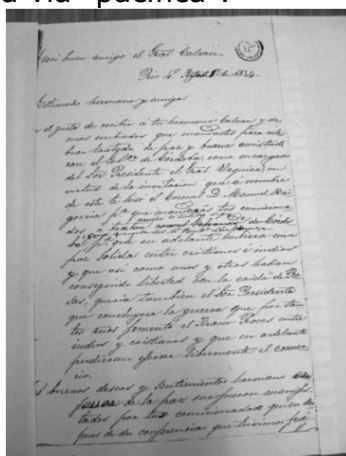 a via "pacífica".
mi buen amigo el Gral. Calvan.
Rio 4º Agost 8 de 1854.
Estimado hermano y amigo
el gusto de recibir a tu hermano Calvan y de
mas embiados que mandastes para cele
brar tratado de paz y buena amistad
con el Gob.no de Córdoba, como encargado
del Sor Presidente el Gral. Urquiza, en
virtud de la invitacion que a nombre
de este te hizo el Coronel D. Manuel Bai
gorria pa. que mandases tus comisiona
dos a
pa. que en adelante hubiera una
paz solida entre cristianos é indios
y que asi como unos y otros habian
conseguido libertad con la caida de Ro
sas, queria tambien el Sor Presidente
que concluyera la guerra que por tan
tos años fomentó el tirano Rosas entre
indios y cristianos y que en adelante
pudieran ejercer libremente el comer
cio.
buenos deseos y sentimientos hermano
de la paz me fueron manifes
tados por tus comicionados quienes des
pues de dos conferencias que tuvimos